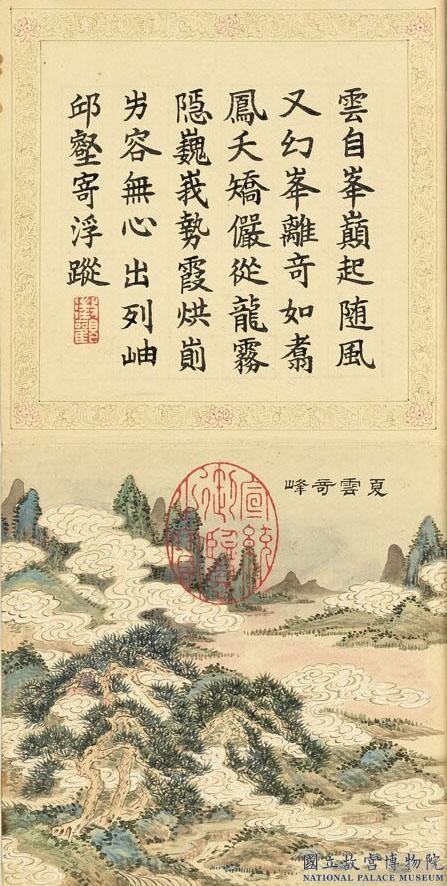 雲自峯巔起随風
又幻峯離竒如翥
鳳夭矯儼從龍霧
隐巍峩勢霞烘崱
屴容無心出列岫
邱壑寄浮蹤
夏雲竒峰
宣統
御覽
之寶
國立故宮博物院
NATIONAL PALACE MUSEUM